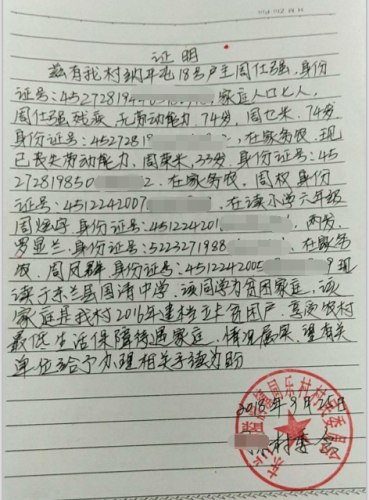 证明
兹有我村纳平屯18号户主周仕强,身份
证号:452728194,家庭人口七人,
周仕强残疾,无劳动能力,74岁,周七米,74岁
身份证号:45272819,在家务农,现
已丧失劳动能力,周荣米,33岁,身份证号:45
272819850 2,在家务农,周权身份
证号:4512242007,在读小学六年级
周焕宇,身份证号:451224201,两岁,
罗显兰,身份证号:5223271988,在家务
农,周凤群身份证号:4512242005 9现
读于东兰县国清中学,该同学为贫困家庭,该
家庭是我村2015年建档立卡贫困户,享受农村
最低生活保障待遇家庭,情况属实,望有关
单位给予办理相关手续为盼
2018年9月25日
村委会
国乐村村民委员会